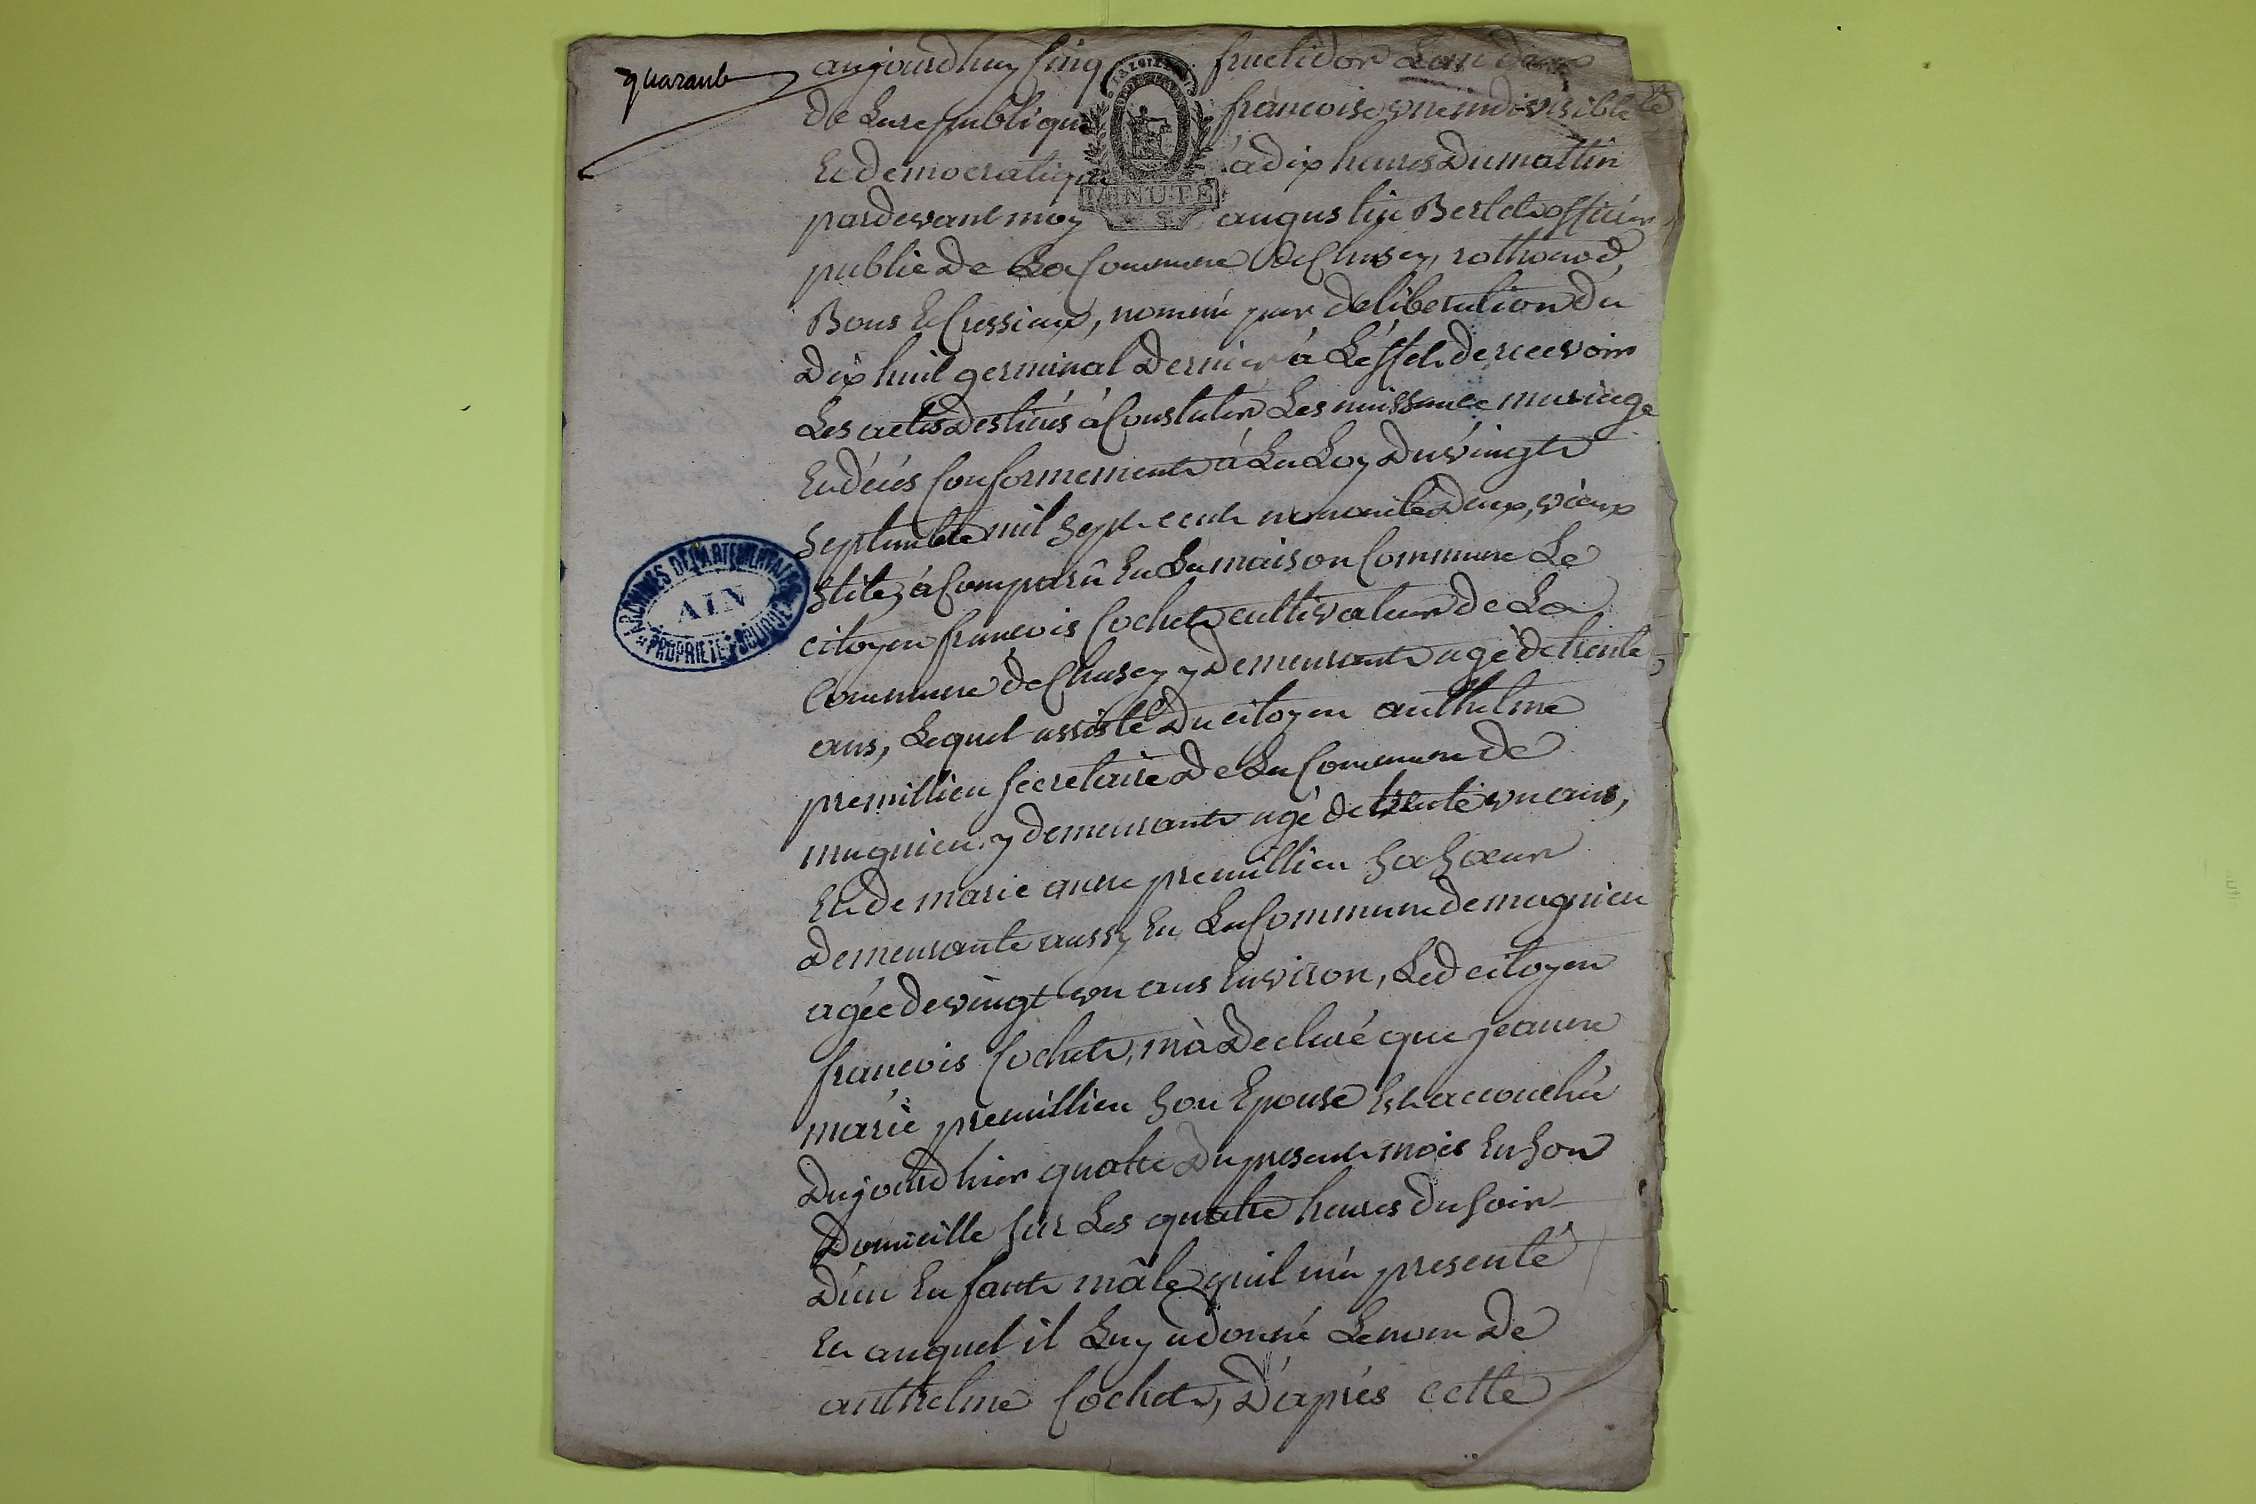 quarante
aujourdhuy cinq fructidor L'an deux
de La republique francoise une indivisible
Et democratique à dix heures Du mattin
pardevant moy augustin Berlet officier
public De La Commune de Chasey, rothonod,
Bons Et Cressieux, nommé par deliberation du
Dix huit germinal Dernier à L'effet de recevoir
Les actes Destinés à Constater Les naissance mariage
Et décés Conformement à La Loy Du vingt
septembre mil sept cent nonante Deux, vieux
stile, à Comparû En La maison Commune Le
citoyen francois Cochet cultivateur de La
Commune de Chasey y Demeurant agé de trente
ans, Lequel assisté Du citoyen anthelme
premillieu secretaire De La Commune de
magnieu y demeurant agé de trente un ans,
Et de marie anne premillieu sa sœur
Demeurante aussy En La Commune de magnieu
agée de vingt un ans Environ, Led citoyen
francois Cochet, m'à Declaré que jeanne
marie premillieu son Epouse Est accouchée
Du jourd hier quatre Du present mois En son
Domicille sur Les quatre heures du soir
D'un Enfant mâle quil m'a presenté
Et auquel il Luy a donné Le nom De
anthelme Cochet, D'aprés cette
MINUTE
ARCHIVES DÉPARTEMENTALES
AIN
PROPRIÉTÉ PUBLIQUE